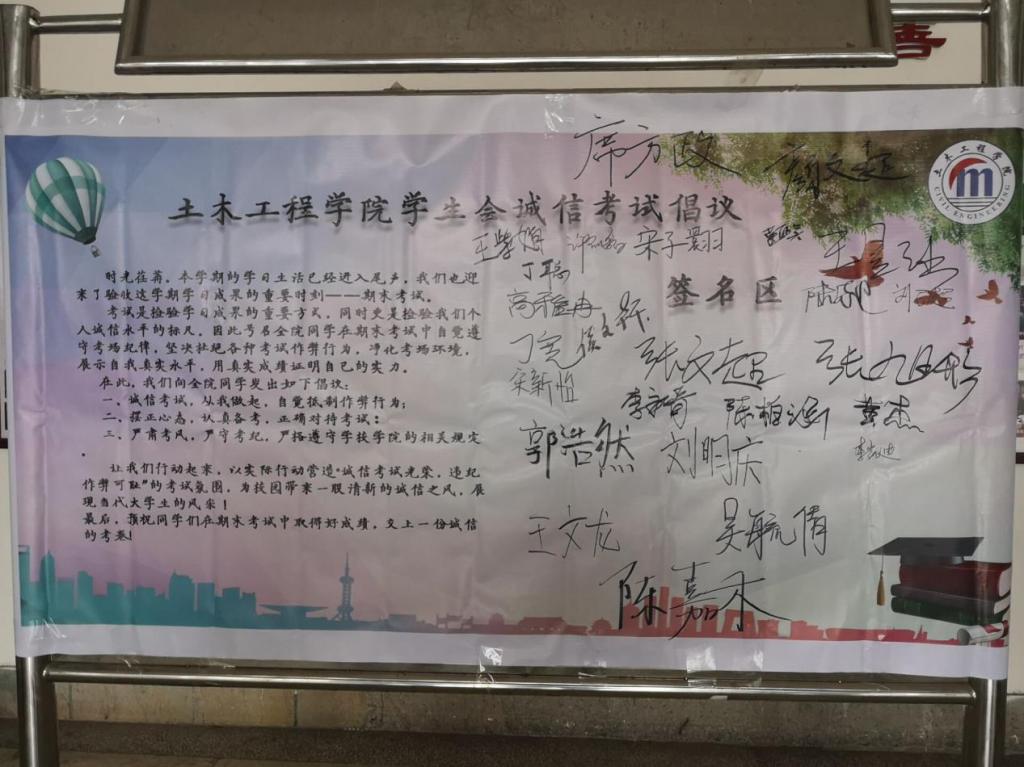 善
席方政
土木工程学院
CIVIL ENGINEERING
土木工程学院学生会诚信考试倡议
丁聪
签名区
时光荏苒，本学期的学习生活已经进入尾声，我们也迎
来了验收这学期学习成果的重要时刻——期末考试。
考试是检验学习成果的重要方式，同时更是检验我们个
人诚信水平的标尺，因此号召全院同学在期末考试中自觉遵
守考场纪律，坚决杜绝各种考试作弊行为，净化考场环境，
展示自我真实水平，用真实成绩证明自己的实力。
在此，我们向全院同学发出如下倡议：
一、诚信考试，从我做起，自觉抵制作弊行为；
二、摆正心态，认真备考，正确对待考试；
三、严肃考风，严守考纪，严格遵守学校学院的相关规定
。
让我们行动起来，以实际行动营造“诚信考试光荣，违纪
作弊可耻”的考试氛围，为校园带来一股清新的诚信之风，展
现当代大学生的风采！
最后，预祝同学们在期末考试中取得好成绩，交上一份诚信
的考卷！
张文超
宋新恒
黄杰
郭浩然
刘明庆
王文龙
吴毓倩
陈嘉禾